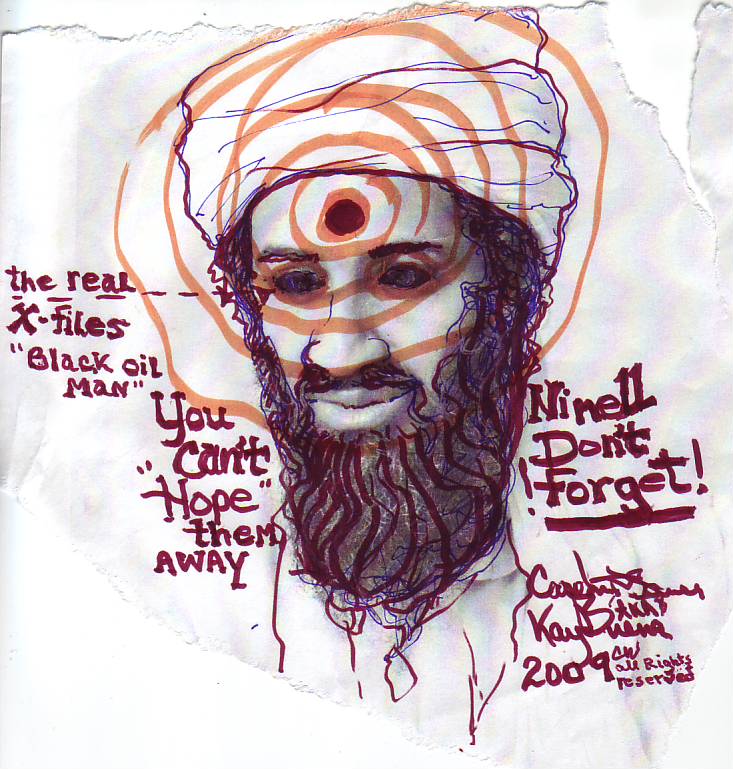 the real
X-files
"Black oil
MAN"
You
"can't
Hope"
them
AWAY
Nine11
Don't
!Forget!
2009
all Rights
reserved